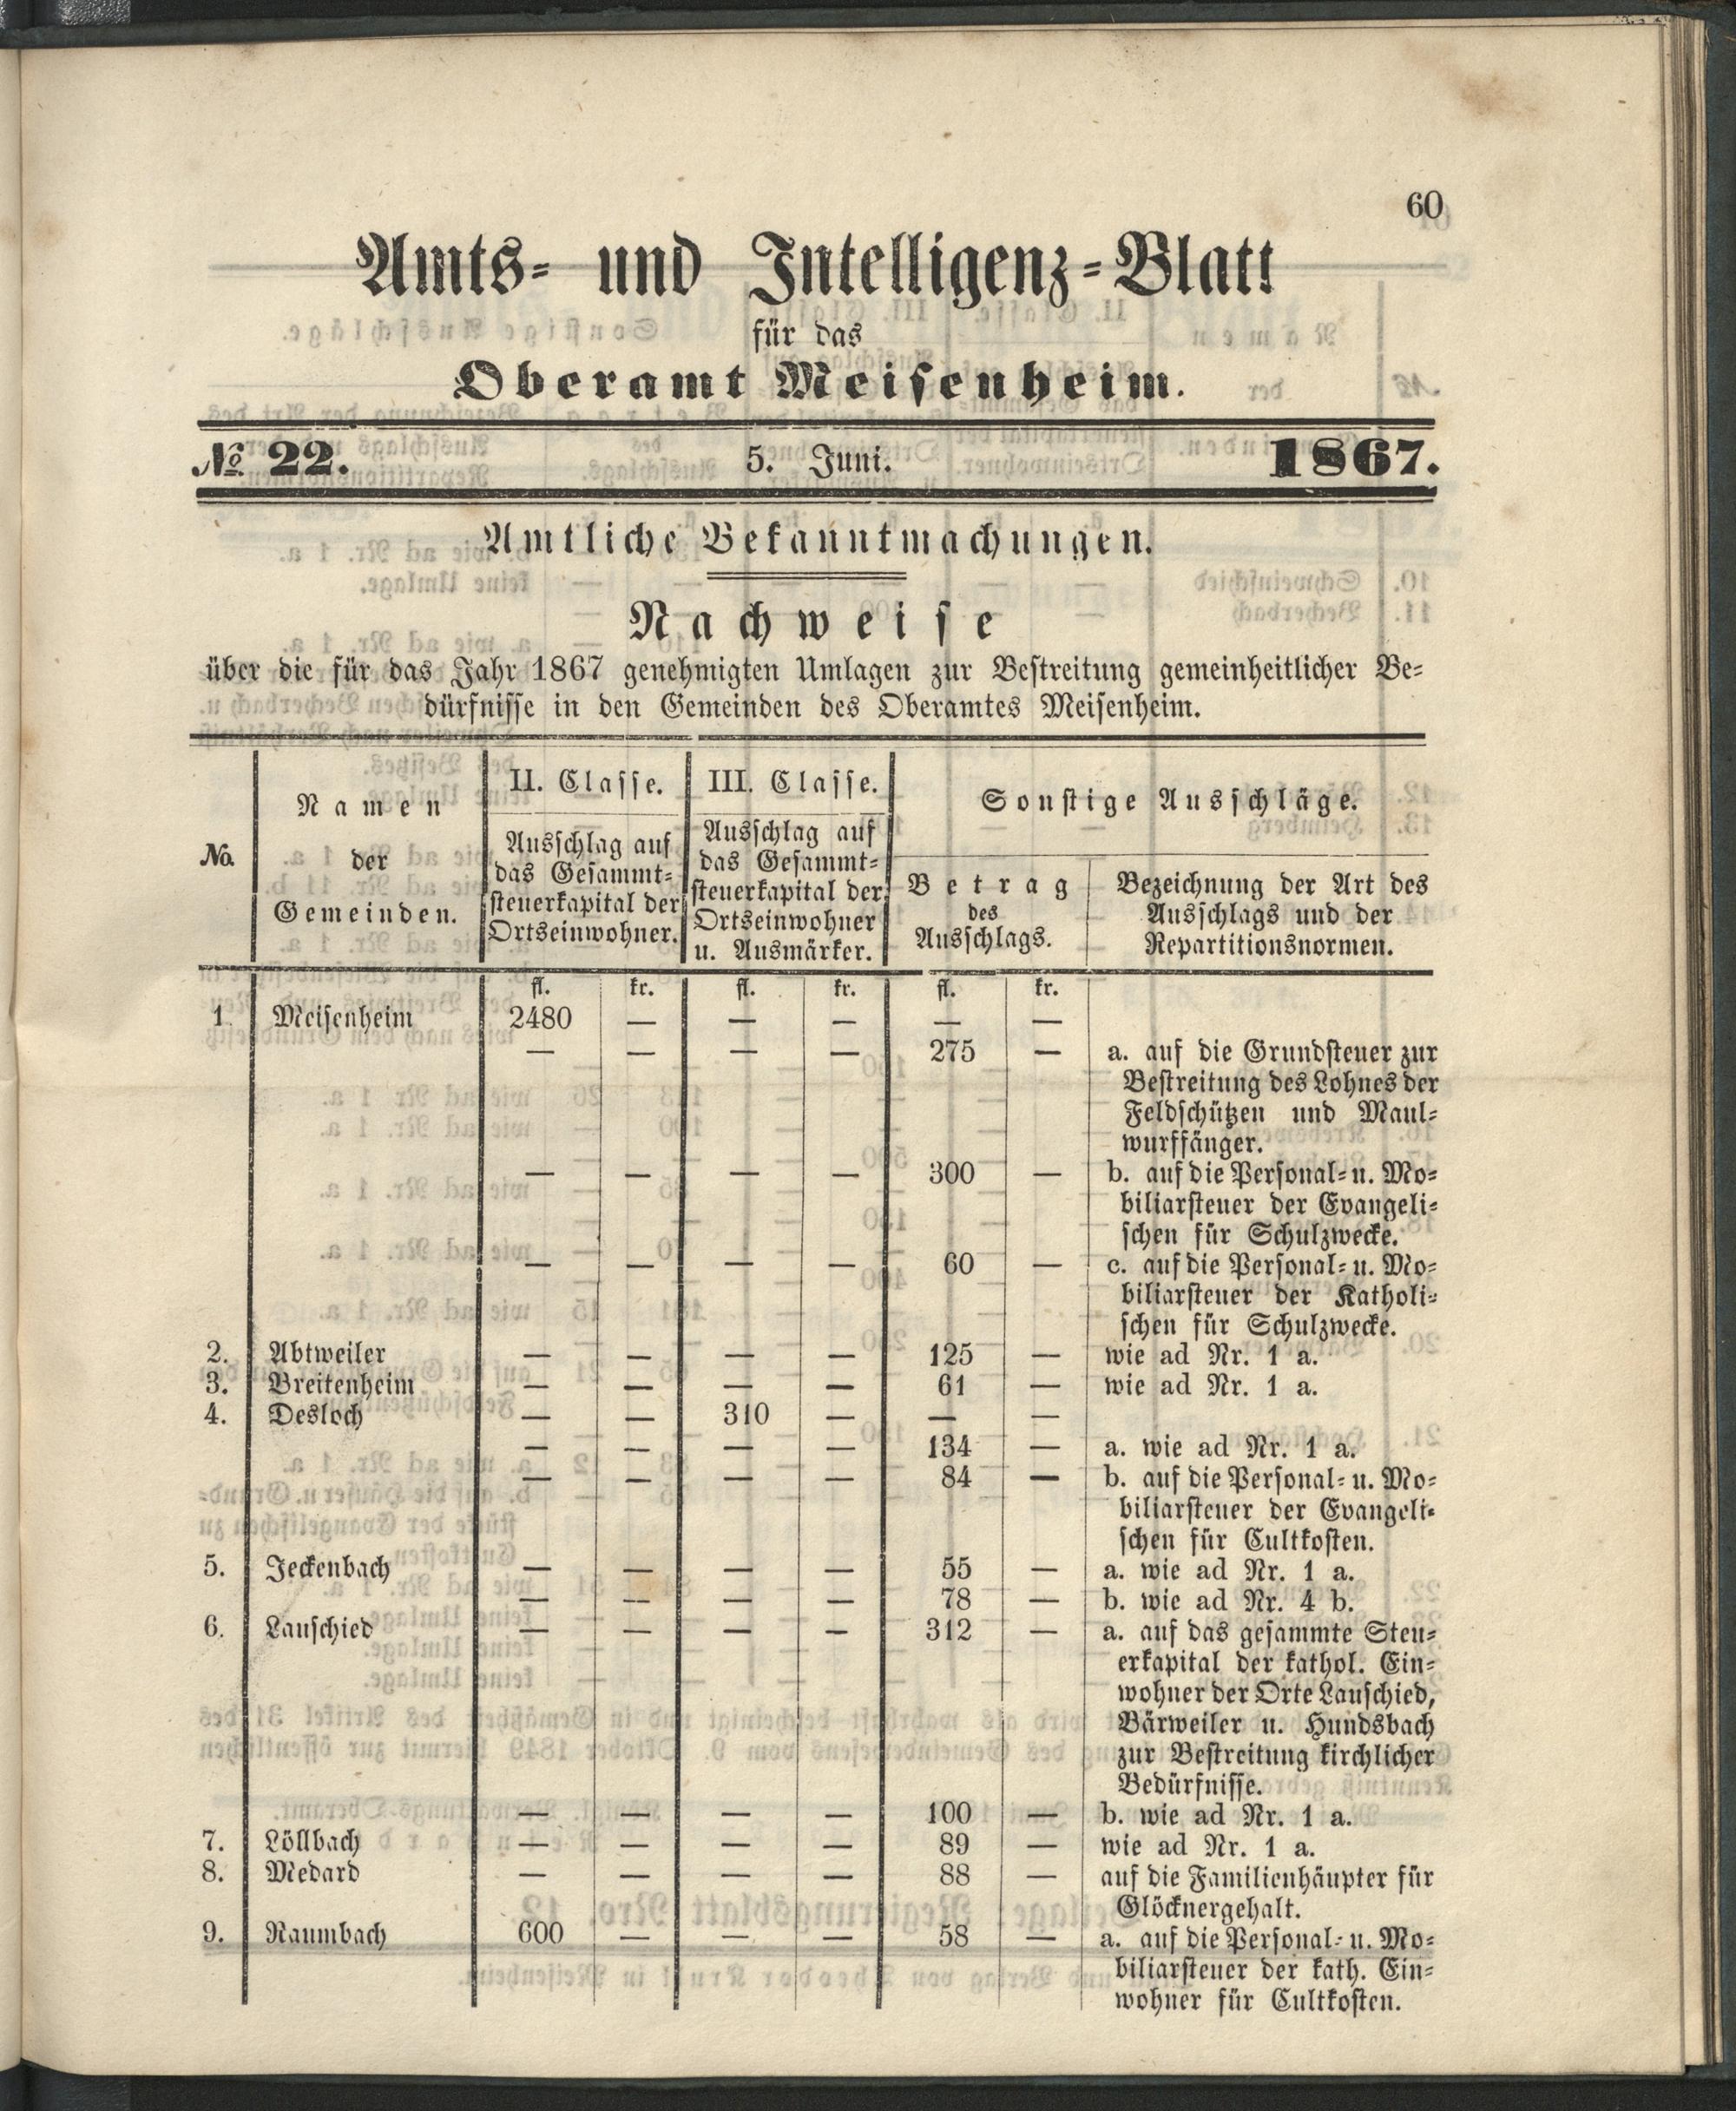 60
Amts- und Intelligenz-Blatt
für das
Oberamt Meisenheim.
No 22. 5. Juni. 1867.
Amtliche Bekanntmachungen.
Nachweise
über die für das Jahr 1867 genehmigten Umlagen zur Bestreitung gemeinheitlicher Be-
dürfnisse in den Gemeinden des Oberamtes Meisenheim.
No.
Namen
der
Gemeinden.
II. Classe.
Ausschlag auf
das Gesammt-
steuerkapital der
Ortseinwohner.
III. Classe.
Ausschlag auf
das Gesammt-
steuerkapital der
Ortseinwohner
u. Ausmärker.
Sonstige Ausschläge.
Betrag
des
Ausschlags.
Bezeichnung der Art des
Ausschlags und der
Repartitionsnormen.
fl. kr. fl. kr. fl. kr.
1. Meisenheim 2480 — — — — —
— — — — 275 — a. auf die Grundsteuer zur
Bestreitung des Lohnes der
Feldschützen und Maul-
wurffänger.
— — — — 300 — b. auf die Personal- u. Mo-
biliarsteuer der Evangeli-
schen für Schulzwecke.
— — — — 60 — c. auf die Personal- u. Mo-
biliarsteuer der Katholi-
schen für Schulzwecke.
2. Abtweiler — — — — 125 — wie ad Nr. 1 a.
3. Breitenheim — — — — 61 — wie ad Nr. 1 a.
4. Desloch — — 310 — — —
— — — — 134 — a. wie ad Nr. 1 a.
— — — — 84 — b. auf die Personal- u. Mo-
biliarsteuer der Evangeli-
schen für Cultkosten.
5. Jeckenbach — — — — 55 — a. wie ad Nr. 1 a.
— — — — 78 — b. wie ad Nr. 4 b.
6. Lauschied — — — — 312 — a. auf das gesammte Steu-
erkapital der kathol. Ein-
wohner der Orte Lauschied,
Bärweiler u. Hundsbach
zur Bestreitung kirchlicher
Bedürfnisse.
— — — — 100 — b. wie ad Nr. 1 a.
7. Löllbach — — — — 89 — wie ad Nr. 1 a.
8. Medard — — — — 88 — auf die Familienhäupter für
Glöcknergehalt.
9. Raumbach 600 — — — 58 — a. auf die Personal- u. Mo-
biliarsteuer der kath. Ein-
wohner für Cultkosten.